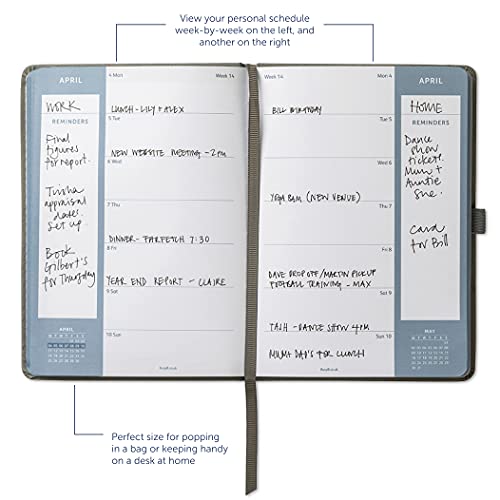 View your personal schedule
week-by-week on the left, and
another on the right
APRIL
WORK
REMINDERS
Final
figures
for report.
Trisha
appraisal
dates.
set up.
Book
Gilbert's
for Thursday
APRIL
M T W T F S S
4 Mon
Week 14
LUNCH - LILY + ALEX
5 Tue
NEW WEBSITE MEETING - 2pm
6 Wed
7 Thu
DINNER - 7:30
8 Fri
YEAR END REPORT - CLAIRE
9 Sat
10 Sun
Week 14
Mon 4
BILL BIRTHDAY
Tue 5
Wed 6
YOGA 8am (NEW VENUE)
Thu 7
Fri 8
DAVE DROP OFF/MARTIN PICKUP
FOOTBALL TRAINING - MAX
Sat 9
DANCE SHOW 4PM
Sun 10
MUM + DAD'S FOR LUNCH
APRIL
HOME
REMINDERS
Dance
show
tickets.
Mum +
Auntie
Sue.
Card
for Bill
MAY
M T W T F S S
Perfect size for popping
in a bag or keeping handy
on a desk at home